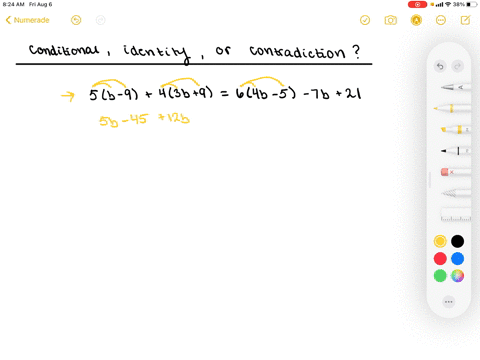 8:24 AM Fri Aug 6
38%
Numerade
conditional, identity, or contradiction?
→ 5(b-9) + 4(3b+9) = 6(4b-5) -7b +21
5b -45 +12b